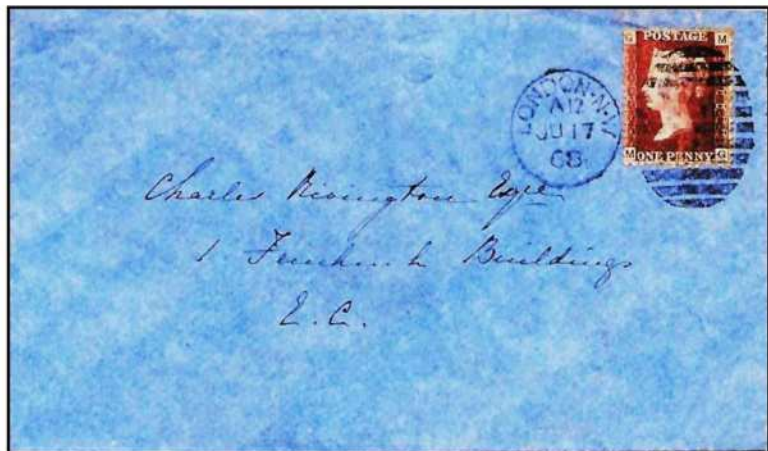 G POSTAGE M
M ONE PENNY G
LONDON·N·W
A12
JU 17
68
Charles Rivington Esqre
1 Fenchurch Buildings
E.C.